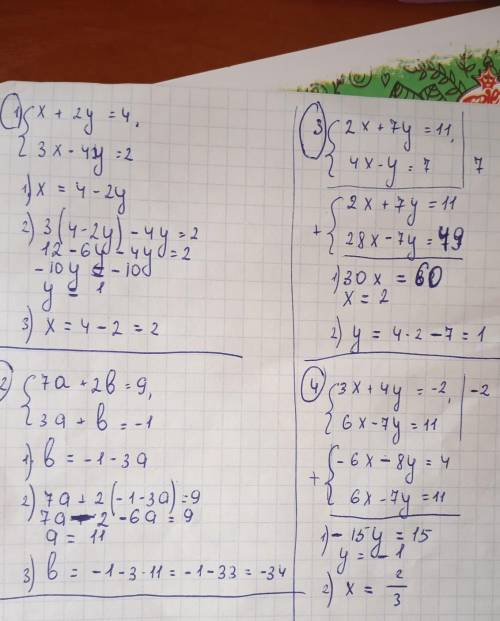 1) { x + 2y = 4,
3x - 4y = 2
1) x = 4 - 2y
2) 3(4 - 2y) - 4y = 2
12 - 6y - 4y = 2
-10y = -10
y = 1
3) x = 4 - 2 = 2
2) { 7a + 2b = 9,
3a + b = -1
1) b = -1 - 3a
2) 7a + 2(-1 - 3a) = 9
7a - 2 - 6a = 9
a = 11
3) b = -1 - 3 · 11 = -1 - 33 = -34
3) { 2x + 7y = 11,
4x - y = 7 | 7
+ { 2x + 7y = 11
28x - 7y = 49
1) 30x = 60
x = 2
2) y = 4 · 2 - 7 = 1
4) { 3x + 4y = -2, | -2
6x - 7y = 11
+ { -6x - 8y = 4
6x - 7y = 11
1) -15y = 15
y = -1
2) x = 2/3